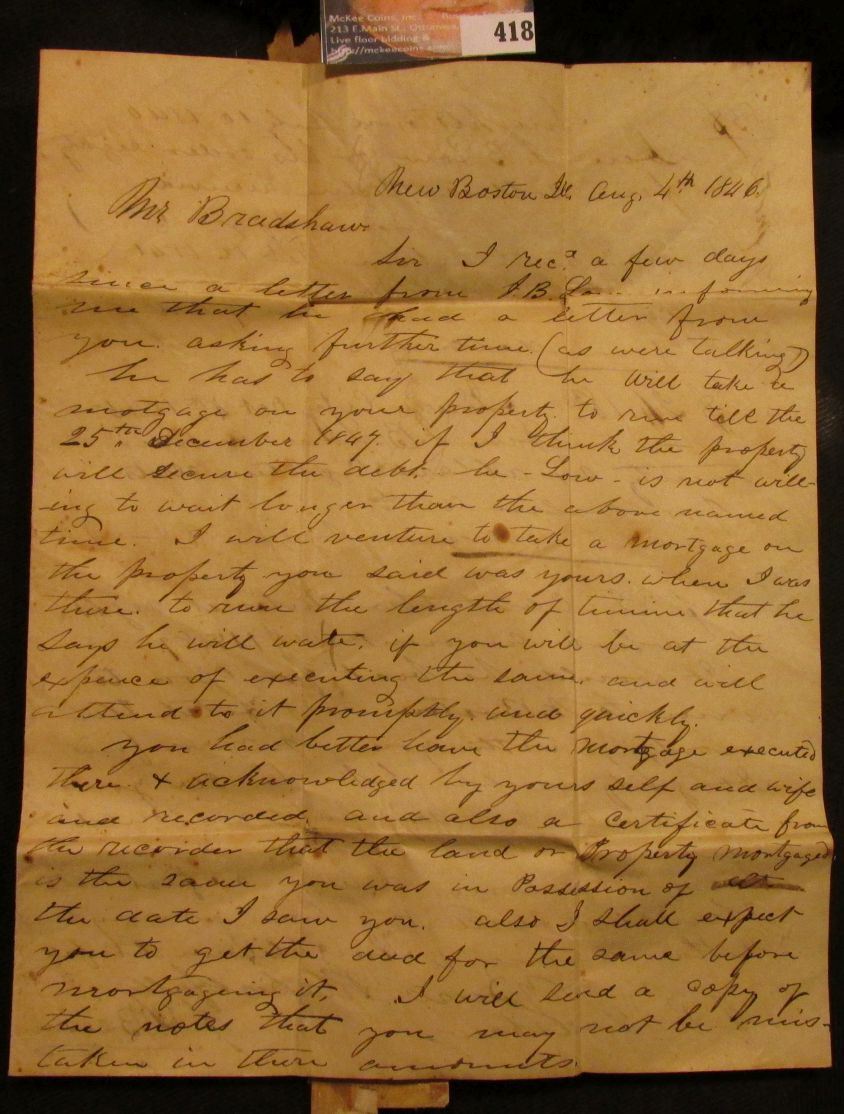 McKee Coins, Inc.
213 E. Main St., Ottumwa,
Live floor bidding &
418
New Boston Ill. Aug. 4th 1846.
Mr Bradshaw
Sir I recd a few days
since a letter from J. B. informing
me that he had a letter from
you. asking further time. (as were talking)
he has to say that he will take
motgage on your property. to run till the
25th. December 1847. if I think the property
will secure the debt. he - Low - is not will-
ing to wait longer than the above named
time. I will venture to take a mortgage on
the property you said was yours. when I was
there. to run the length of timme that he
says he will wate. if you will be at the
expence of executing the same. and will
attend to it promptly. and quickly.
you had better have the mortgage executed
there & acknowledged by yours self and wife
and recorded. and also a Certificate from
the recorder that the land or Property mortgaged
is the same you was in Possession of
the date I saw you. also I shall expect
you to get the deed for the same before
mortgageing it. I will send a copy of
the notes that you may not be mis-
taken in there amounts.